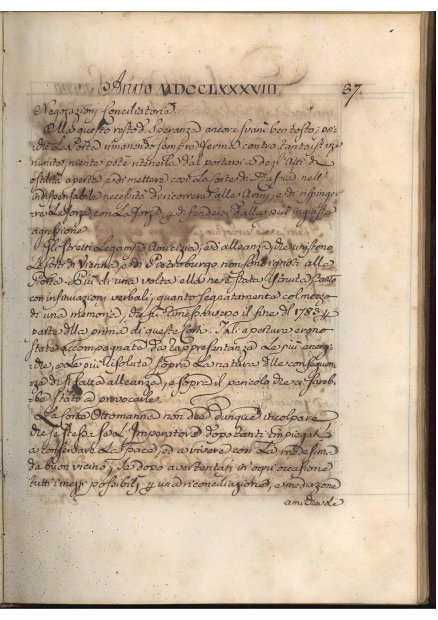 Anno MDCCLXXXXVIII. 37.
Negoziazioni Conciliatorie.
Ma questo resto di Speranza ancora svanì ben tosto;
la Porta rimanendo sempre ferma contro tanto
niente potè ritenerla dal portarsi degl'Atti di
ostilità aperte, e di mettere così la Corte di Russia nell'
indispensabile necessità di ricorrere alle Armi, e di rispinge
re La forza con La forza, e di fendersi dalla più ingiusta
agressione.
Gli stretti Legami d'Amicizia, ed alleanza, che uniscono
Le Corti di Vienna, e di Pietroburgo non sono ignoti alla
Porta. Più di una volta ella ne è stata istruita, tanto
con insinuazioni verbali, quanto segnatamente col mezzo
di una memoria, verso il fine del 1783
parte della prima di queste Corti. Tali aperture
state accompagnate da rappresentanza Le più ener
giche, e Le più risolute sopra La natura delle conseguen
ze di si fatta alleanza, e sopra il pericolo che vi sareb
be stato a provocarle.
La Corte Ottomanna non deve Dunque incolpare
che se stessa se L'Imperatore dopo tanti impiegati
a conservare La Pace, ed a vivere con La medesima
da buon vicino; se dopo aver tentati in ogni occasione
tutti i mezzi possibili p una riconciliazione, e mediazione
amichevole